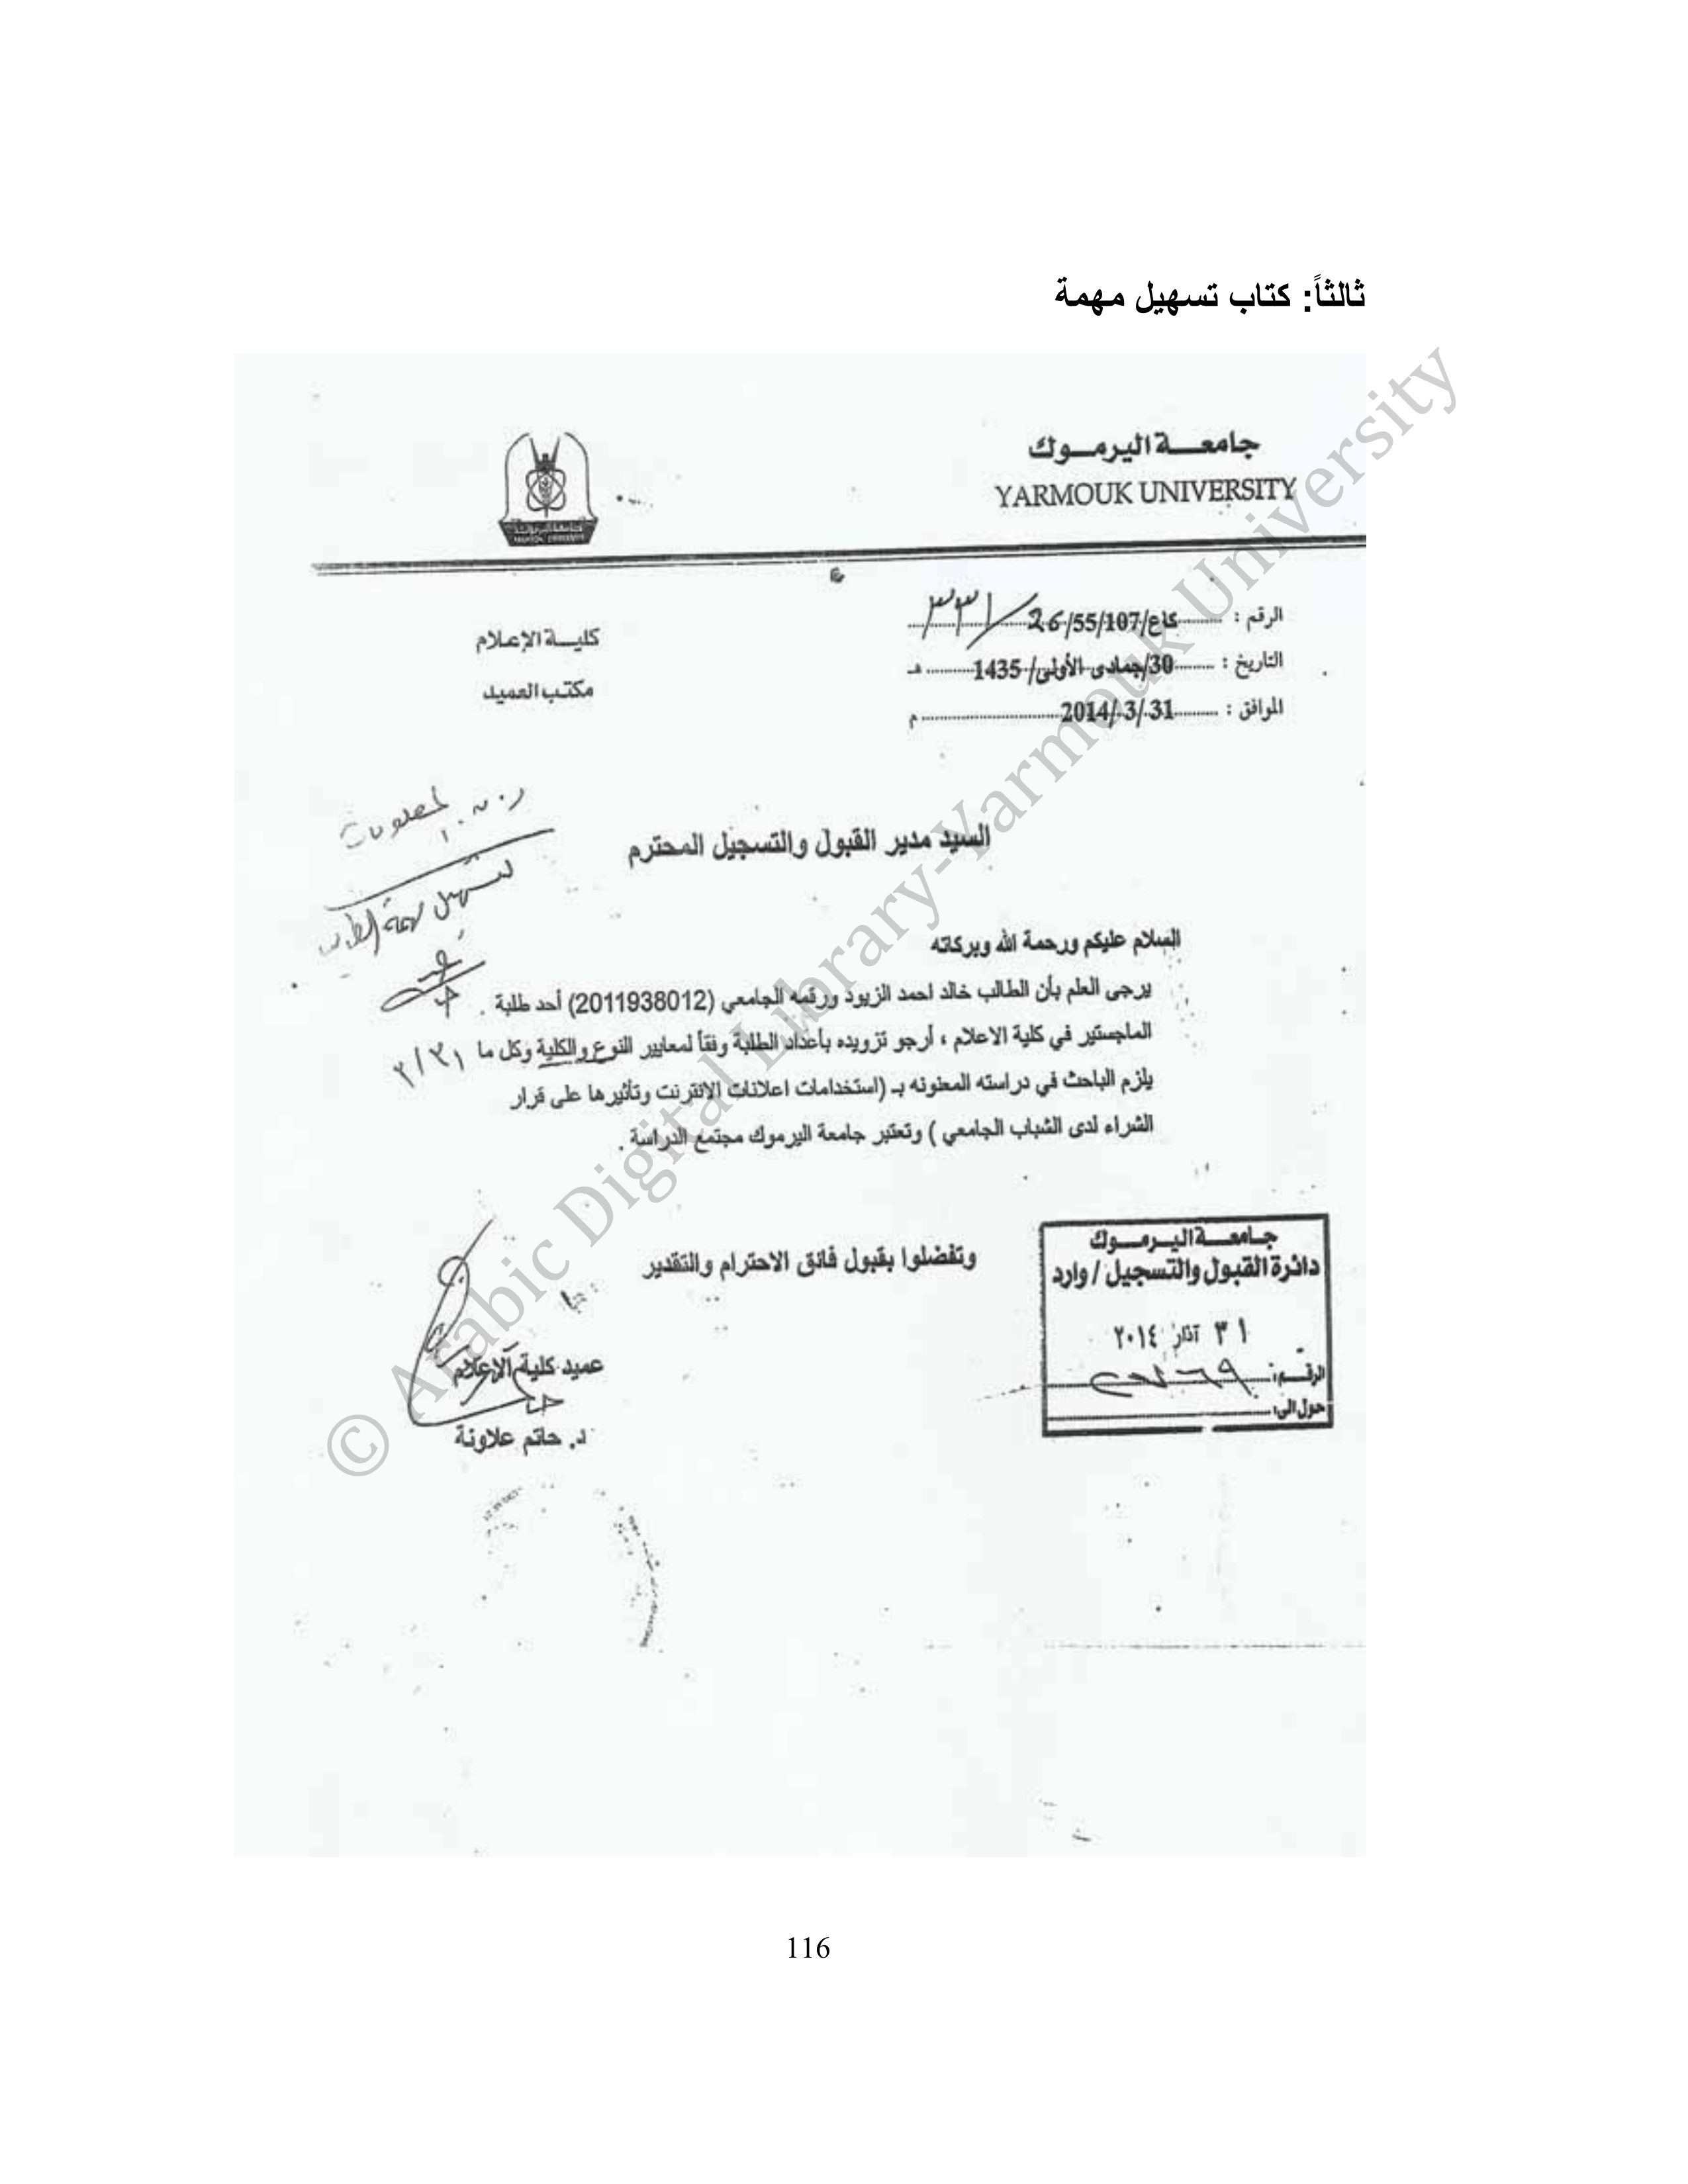 ثالثاً: كتاب تسهيل مهمة
جامعة اليرموك
YARMOUK UNIVERSITY
الرقم : كاع/107/55/26/٣٣١
التاريخ : 30/جمادى الأولى/ 1435 هـ
الموافق : 31/3/2014 م
كلية الإعلام
مكتب العميد
لتسهيل مهمة الطالب
السيد مدير القبول والتسجيل المحترم
السلام عليكم ورحمة الله وبركاته
يرجى العلم بأن الطالب خالد احمد الزيود ورقمه الجامعي (2011938012) أحد طلبة
الماجستير في كلية الاعلام ، أرجو تزويده بأعداد الطلبة وفقاً لمعايير النوع والكلية وكل ما
٣١/٣
يلزم الباحث في دراسته المعنونه بـ (استخدامات اعلانات الانترنت وتأثيرها على قرار
الشراء لدى الشباب الجامعي ) وتعتبر جامعة اليرموك مجتمع الدراسة .
وتفضلوا بقبول فائق الاحترام والتقدير
عميد كلية الإعلام
د. حاتم علاونة
جامعة اليرموك
دائرة القبول والتسجيل / وارد
٣١ آذار ٢٠١٤
الرقم:
حول الى:
© Arabic Digital Library-Yarmouk University
116